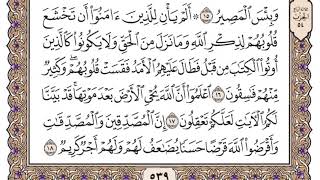 وَبِئْسَ ٱلْمَصِيرُ ١٥ أَلَمْ يَأْنِ لِلَّذِينَ ءَامَنُوٓا۟ أَن تَخْشَعَ
قُلُوبُهُمْ لِذِكْرِ ٱللَّهِ وَمَا نَزَلَ مِنَ ٱلْحَقِّ وَلَا يَكُونُوا۟ كَٱلَّذِينَ
أُوتُوا۟ ٱلْكِتَٰبَ مِن قَبْلُ فَطَالَ عَلَيْهِمُ ٱلْأَمَدُ فَقَسَتْ قُلُوبُهُمْ ۖ وَكَثِيرٌ
مِّنْهُمْ فَٰسِقُونَ ١٦ ٱعْلَمُوٓا۟ أَنَّ ٱللَّهَ يُحْىِ ٱلْأَرْضَ بَعْدَ مَوْتِهَا ۚ قَدْ بَيَّنَّا
لَكُمُ ٱلْءَايَٰتِ لَعَلَّكُمْ تَعْقِلُونَ ١٧ إِنَّ ٱلْمُصَّدِّقِينَ وَٱلْمُصَّدِّقَٰتِ
وَأَقْرَضُوا۟ ٱللَّهَ قَرْضًا حَسَنًا يُضَٰعَفُ لَهُمْ وَلَهُمْ أَجْرٌ كَرِيمٌ ١٨
٥٣٩
الحزب
٥٤